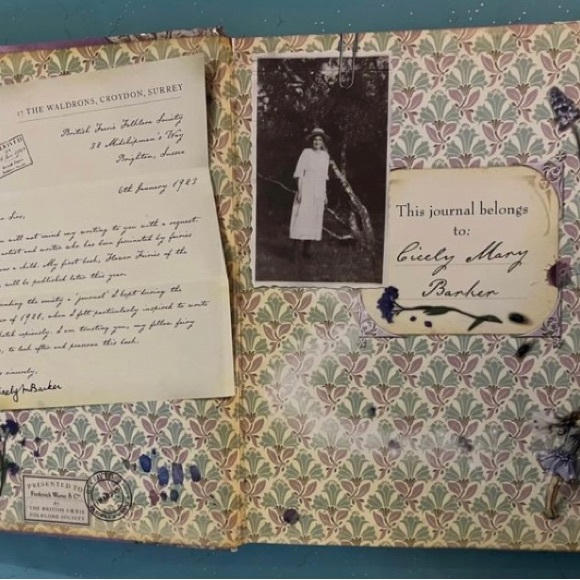 17 THE WALDRONS, CROYDON, SURREY
British Faerie Folklore Society
38 Midshipman's Way
Brighton, Sussex
6th January 1923
will not mind my writing to you with a request.
artist and writer who has been fascinated by fairies
a child. My first book, Flower Fairies of the
will be published later this year.
the society a 'journal' I kept during the
of 1920, when I felt particularly inspired to write
copiously. I am trusting you, my fellow fairy
to look after and preserve this book.
sincerely,
Cicely M Barker
This journal belongs
to:
Cicely Mary
Barker
PRESENTED TO
Frederick Warne & Co.
THE BRITISH FÆRIE
FOLKLORE SOCIETY